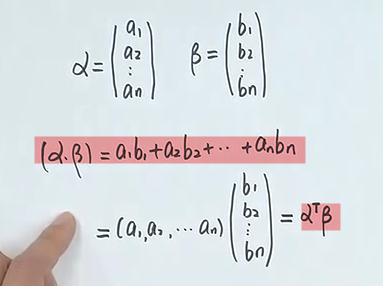 α = (a₁ a₂ ⋮ aₙ) β = (b₁ b₂ ⋮ bₙ)
(α.β) = a₁b₁+a₂b₂+ ⋯ +aₙbₙ
= (a₁,a₂,⋯ aₙ) (b₁ b₂ ⋮ bₙ) = αᵀβ